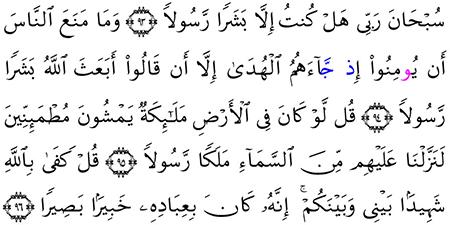 سُبْحَانَ رَبِّى هَلْ كُنتُ إِلَّا بَشَرًا رَّسُولاً ۝٩٣ وَمَا مَنَعَ النَّاسَ
أَن يُومِنُواْ إِذ جَّآءَهُمُ الْهُدَىٰ إِلَّا أَن قَالُواْ أَبَعَثَ اللَّهُ بَشَرًا
رَّسُولاً ۝٩٤ قُل لَّوْ كَانَ فِى الْأَرْضِ مَلَـٰٓئِكَةٌ يَمْشُونَ مُطْمَئِنِّينَ
لَنَزَّلْنَا عَلَيْهِم مِّنَ السَّمَآءِ مَلَكًا رَّسُولاً ۝٩٥ قُلْ كَفَىٰ بِاللَّهِ
شَهِيدًا بَيْنِى وَبَيْنَكُمْ ۚ إِنَّهُۥ كَانَ بِعِبَادِهِۦ خَبِيرًا بَصِيرًا ۝٩٦